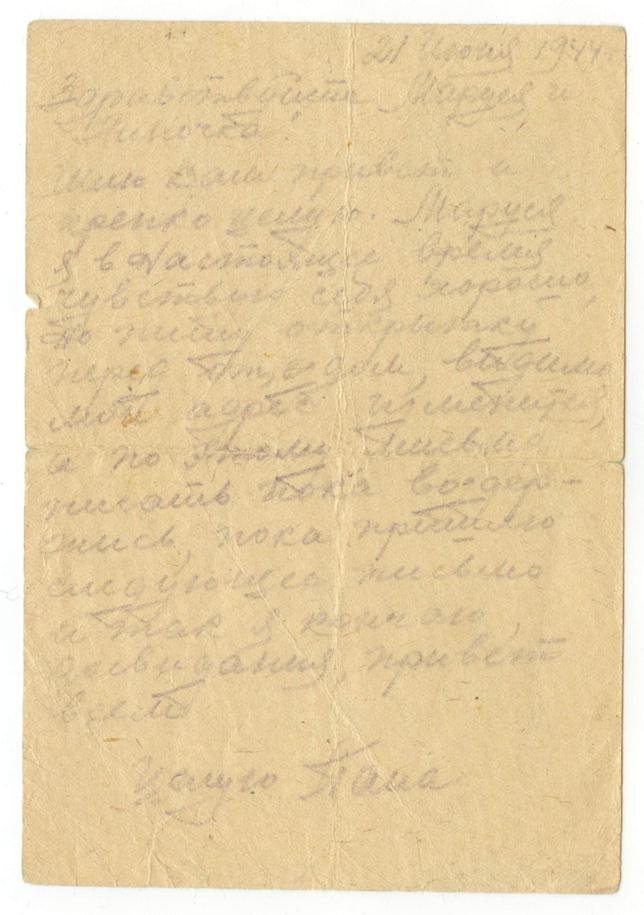 21 Июня 1944 г.
Здравствуйте Маруся и
Ниночка!
Шлю вам привет и
крепко целую. Маруся
я в настоящее время
чувствую себя хорошо,
но пишу открытку
перед отъездом, видимо
мой адрес изменится,
и по этому письма
писать пока воздер-
жись, пока пришлю
следующее письмо
и так я кончаю,
досвидания, привет
всем
Целую Папа